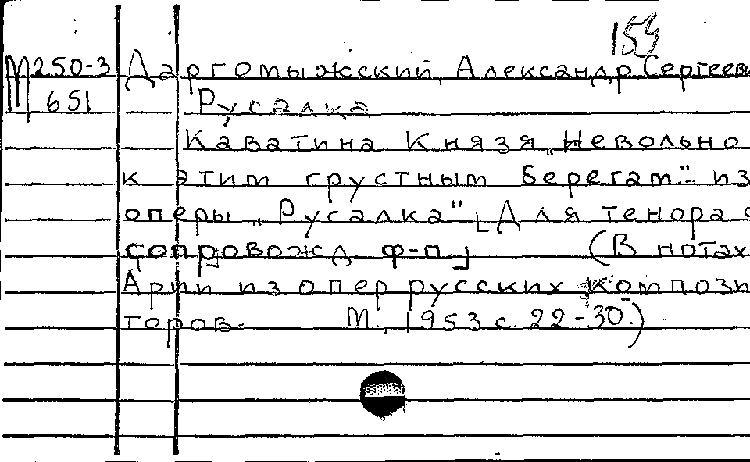 154
М250-3 Даргомыжский, Александр Сергеев
651 Русалка
Каватина Князя „Невольно
к этим грустным берегам" из
оперы „Русалка" [Для тенора с
сопровожд. ф-п.] (В нотах
Арии из опер русских компози
торов. М., 1953 с. 22-30.)